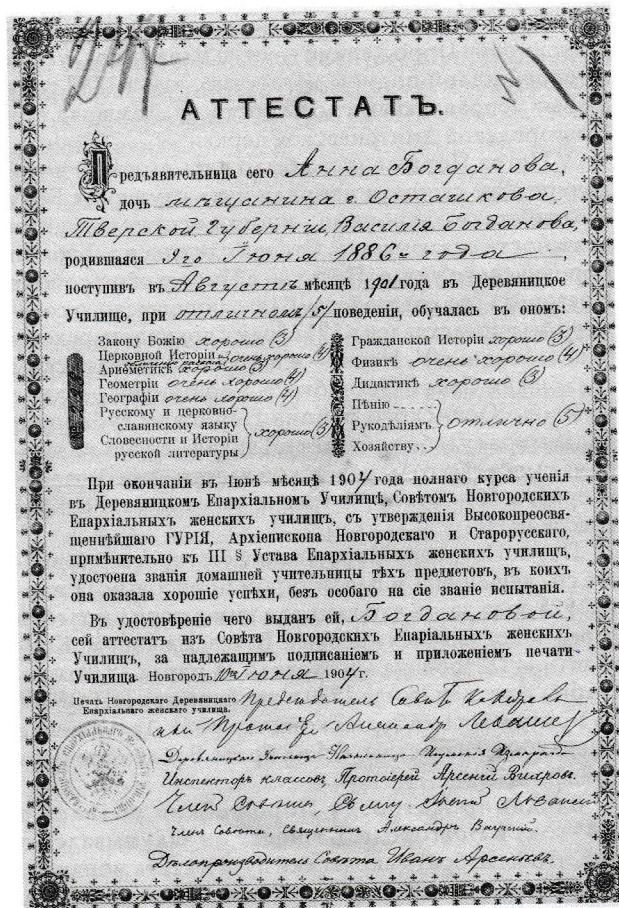 АТТЕСТАТЪ.
Предъявительница сего Анна Богданова,
дочь мѣщанина г. Осташкова,
Тверской Губерніи, Василія Богданова,
родившаяся 9го Іюня 1886 года,
поступив въ Августѣ мѣсяцѣ 1901 года въ Деревяницкое
Училище, при отличномъ (5) поведеніи, обучалась въ ономъ:
Закону Божію хорошо (3)
Церковной Исторіи очень хорошо (4)
Ариѳметикѣ хорошо (3)
Геометріи очень хорошо (4)
Географіи очень хорошо (4)
Русскому и церковно-
славянскому языку
Словесности и Исторіи
русской литературы
хорошо (3)
Гражданской Исторіи хорошо (3)
Физикѣ очень хорошо (4)
Дидактикѣ хорошо (3)
Пѣнію
Рукодѣліямъ
Хозяйству
отлично (5)
При окончаніи въ Іюнѣ мѣсяцѣ 1904 года полнаго курса ученія
въ Деревяницкомъ Епархіальномъ Училищѣ, Совѣтомъ Новгородскихъ
Епархіальныхъ женскихъ училищъ, съ утвержденія Высокопреосвя-
щеннѣйшаго ГУРІЯ, Архіепископа Новгородскаго и Старорусскаго,
примѣнительно къ III § Устава Епархіальныхъ женскихъ училищъ,
удостоена званія домашней учительницы тѣхъ предметовъ, въ коихъ
она оказала хорошіе успѣхи, безъ особаго на сіе званіе испытанія.
Въ удостовѣреніе чего выданъ ей, Богдановой,
сей аттестатъ изъ Совѣта Новгородскихъ Епархіальныхъ женскихъ
Училищъ, за надлежащимъ подписаніемъ и приложеніемъ печати
Училища. Новгородъ, 10го Іюня 1904 г.
Печать Новгородскаго Деревяницкаго
Епархіальнаго женскаго училища.
Предсѣдатель Совѣта
Протоіерей Александръ
Деревяницкаго Училища Начальница Игуменія
Инспекторъ классовъ, Протоіерей Арсеній Вихровъ.
Членъ Совѣта,
Членъ Совѣта, Священникъ Александръ
Дѣлопроизводитель Совѣта Иванъ Арсеньевъ.